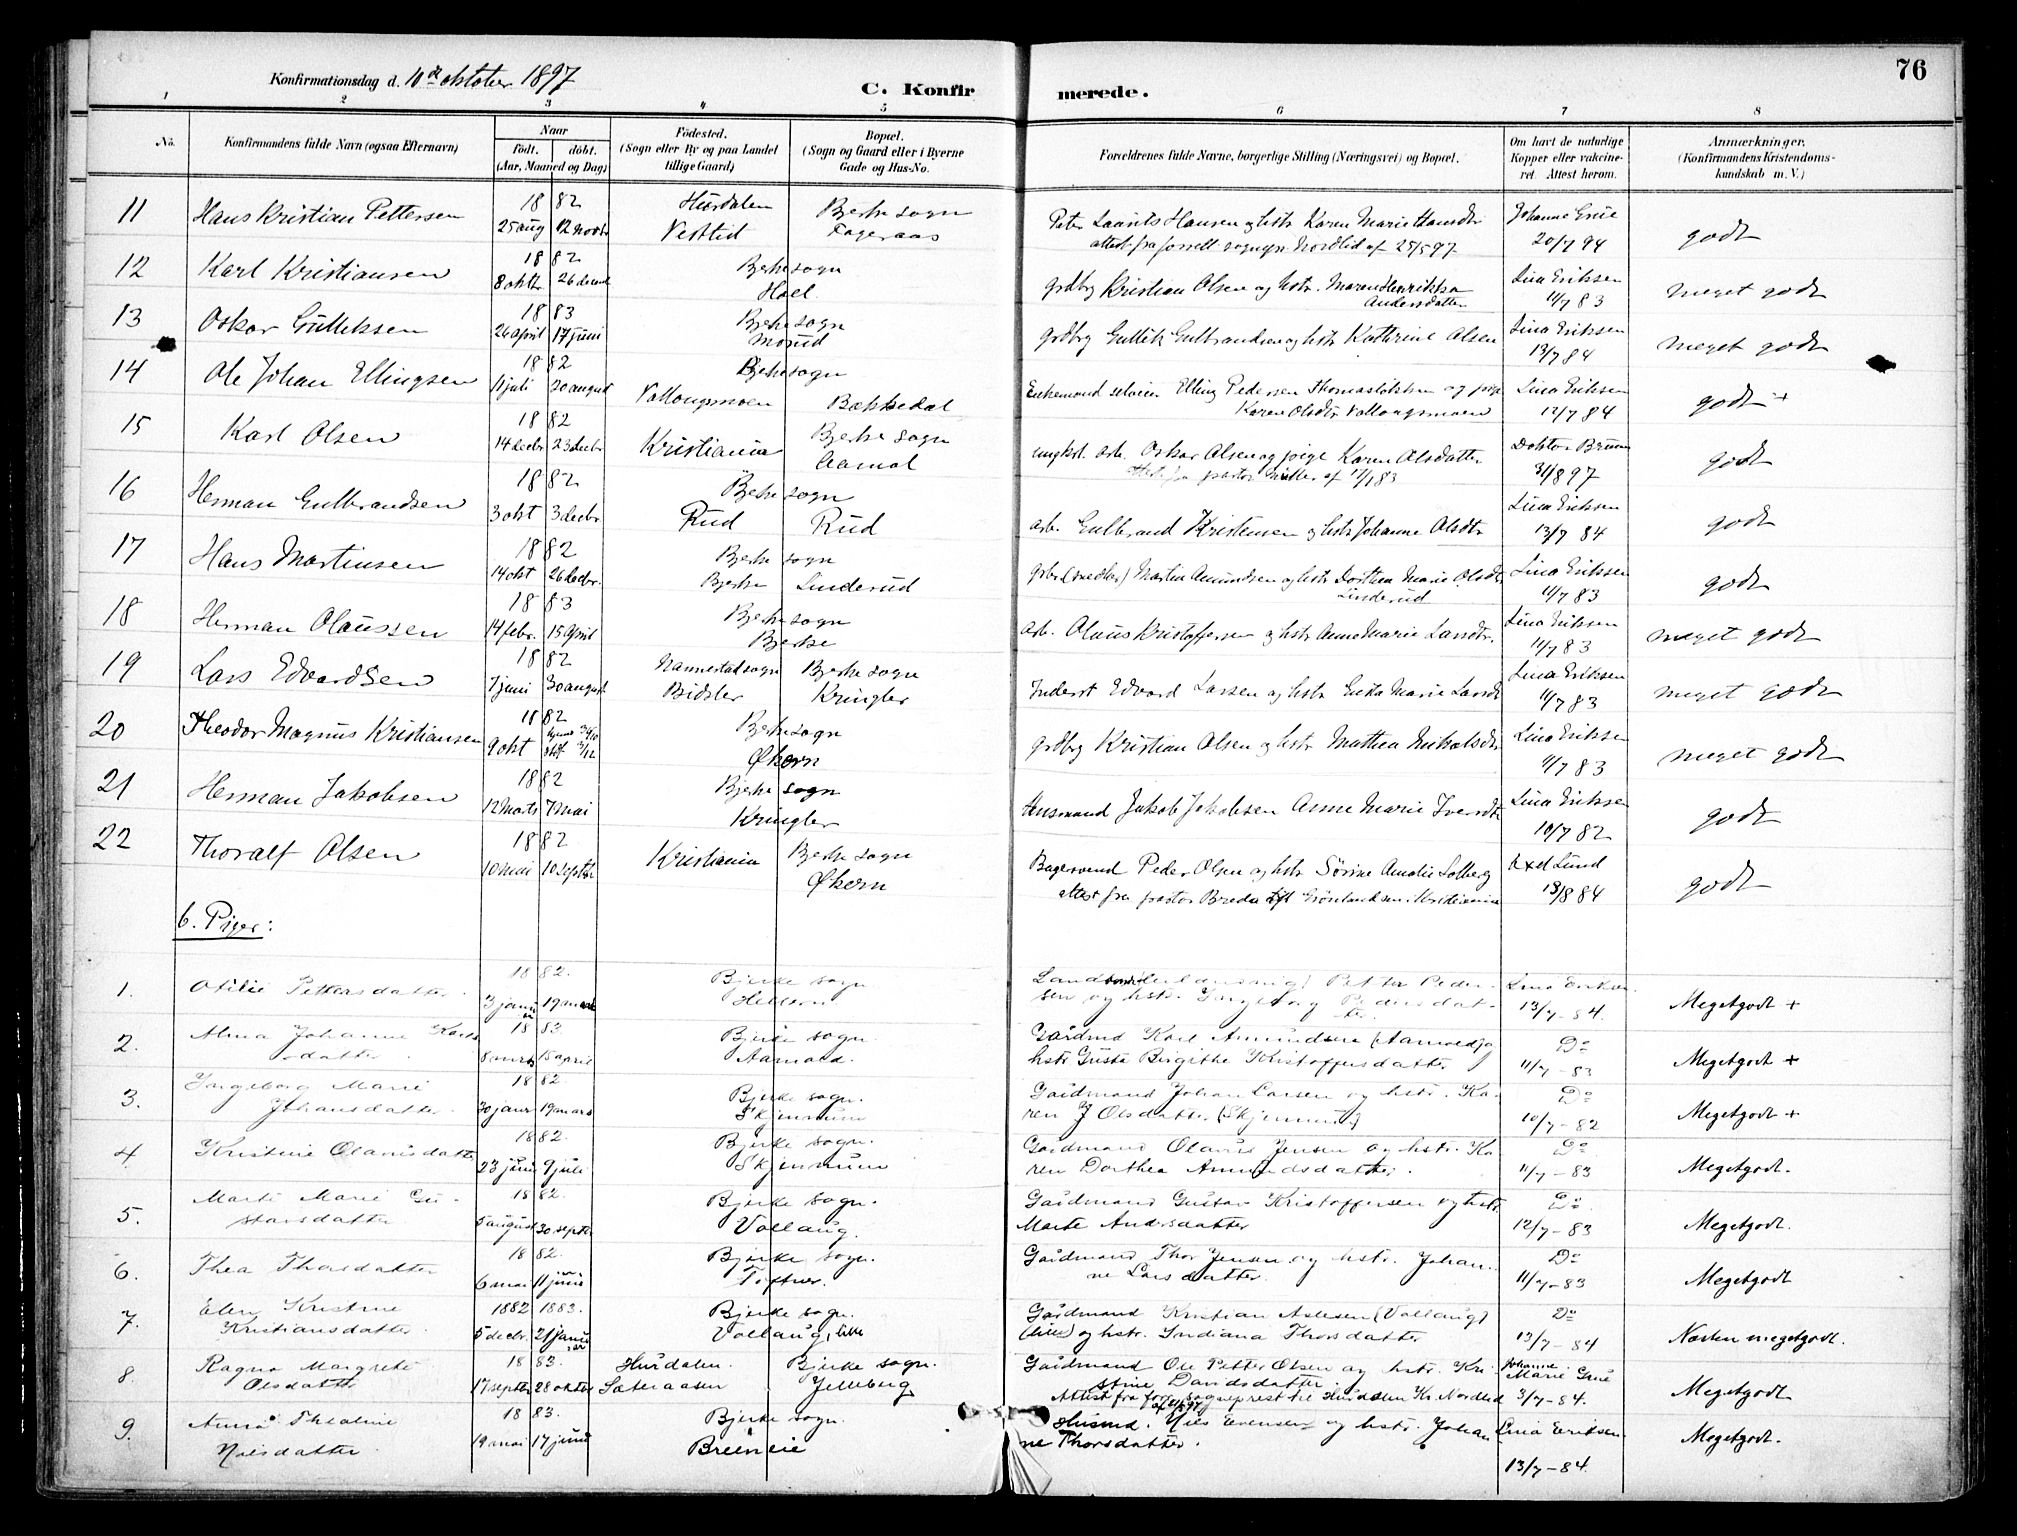 76
Konfirmationsdag d. 10de oktober 1897
C. Konfirmerede.
1 2 3 4 5 6 7 8
No. Konfirmandens fulde Navn (ogsaa Efternavn) Naar Födt. döbt. (Aar, Maaned og Dag) Födested. (Sogn eller By og paa Landet tillige Gaard) Bopæl. (Sogn og Gaard eller i Byerne Gade og Hus-No. Forældrenes fulde Navne, borgerlige Stilling (Næringsvei) og Bopæl. Om havt de naturlige Kopper eller vaccineret. Attest herom. Anmærkninger. (Konfirmandens Kristendomskundskab m. V.)
11 Hans Kristian Pettersen 1882 25 aug 12 novbr Hurdalen Bjerke sogn Peter Laurits Hansen og hstr Karen Marie Hansdtr Johanne Grue
Fageraas 20/7 94 godt
12 Karl Kristiansen 1882 8 oktbr Bjerke sogn Hoel grdbrg Kristian Olsen og hstr. Maren Henrikka Lina Eriksen
Andersdatter 11/7 83 meget godt
13 Oskar Gulliksen 1883 26 april 17 juni Bjerke sogn grdbrg Gullik Gulbrandsen og hstr Kathrine Olsen Lina Eriksen
13/7 84 meget godt
14 Ole Johan Ellingsen 1882 11 juli 20 august Bjerke sogn
Vallaugsmoen Bækkedal Enkemand Elling Pedersen og pige Lina Eriksen
Karen Olsdtr Vallaugsmoen 12/7 84 godt +
15 Karl Olsen 1882 14 decbr 23 decbr Kristiania Bjerke sogn ungkrl. arb. Oskar Olsen og pige Karen Olsdatter Doktor
31/8 97 godt
16 Herman Gulbrandsen 1882 3 okt 3 decbr Bjerke sogn Lina Eriksen
Rud Rud arb. Gulbrand Kristensen og hstr Johanne Olsdtr 13/7 84 godt
17 Hans Martinsen 1882 14 okt 26 decbr. Bjerke sogn
Bjerke Linderud Martin Amundsen og hstr Dorthea Marie Olsdtr Lina Eriksen
Linderud 11/7 83 godt
18 Herman Olaussen 1883 14 febr. 15 april Bjerke sogn
Bjerke arb. Olaus Kristoffersen og hstr Anne Marie Larsdtr. Lina Eriksen
11/7 83 meget godt
19 Lars Edvardsen 1882 7 juni 30 august Nannestad sogn Bjerke sogn
Bidsler Kringler Inderst Edvard Larsen og hstr Marie Larsdtr Lina Eriksen
11/7 83 meget godt
20 Theodor Magnus Kristiansen 1882 9 okt Bjerke sogn
Økern grdbrg Kristian Olsen og hstr Mathea Lina Eriksen
11/7 83 meget godt
21 Herman Jakobsen 1882 12 marts 7 mai Bjerke sogn
Kringler Husmand Jakob Jakobsen Anne Marie Iversdtr Lina Eriksen
10/7 82 godt
22 Thoralf Olsen 1882 10 mai 10 septbr Kristiania Bjerke sogn
Økern Bagersvend Peder Olsen og hstr Sørine Amalie Solberg Axel Lund
attest fra pastor Kristiania 13/8 84 godt
b. Piger:
1. Otilie Pettersdatter 1882. Bjerke sogn Petter Pedersen og hstr. Ingeborg Pedersdatter Lina Eriksen
13/7-84. Megetgodt +
2. Alma Johanne Karlsdatter 1883 8 marts 15 april Bjerke sogn.
Gårdmd Karl Amundsen
hstr. Guste Birgithe Kristoffersdatter Do 11/7-83 Megetgodt +
3. Ingeborg Marie Johansdatter. 1882. 30 janr 19 mars Bjerke sogn.
Skjennum Gårdmand Johan Larsen og hstr. Karen J Olsdatter (Skjennum) Do 10/7-82 Megetgodt +
4. Kristine Olausdatter 1882. 23 juni 9 juli Bjerke sogn.
Skjennum Gårdmand Olaus Jensen og hstr. Karen Dorthea Amundsdatter. Do 11/7-83 Megetgodt.
5. Marte Marie Gustavsdatter 1882. 5 august 30 septbr Bjerke sogn.
Vollaug. Gårdmand Gustav Kristoffersen og hstr.
Marte Andersdatter Do 12/7-83 Megetgodt.
6. Thea Thorsdatter 1882. 6 mai 11 juni Bjerke sogn.
Tøftner. Gårdmand Thor Jensen og hstr. Johanne Larsdatter. Do 11/7-83 Megetgodt
7. Elen Kristine Kristiansdatter 1882 1883. 5 decbr. 21 januar Bjerke sogn.
Vollaug, lille Gårdmand Kristian Aslesen (Vollaug)
(lille) og hstr. Indiana Thorsdatter Do 13/7-84 Næsten megetgodt.
8. Ragna Margrete Olsdatter 1883. 17 septbr 28 oktbr Hurdalen. Bjerke sogn.
Sæteraasen Jelleberg Gårdmand Ole Petter Olsen og hstr. Kristine Davidsdatter. Johanne Marie Grue
Attest fra forr. sogneprest til Hurdalen Kr. Nordlid 3/7-84. Megetgodt
9. Anna Thealine Nilsdatter 1883. 19 mai 17 juni Bjerke sogn.
Breeneie Husmd. Nils Evensen og hstr. Johanne Thorsdatter. Lina Eriksen
13/7-84. Megetgodt.